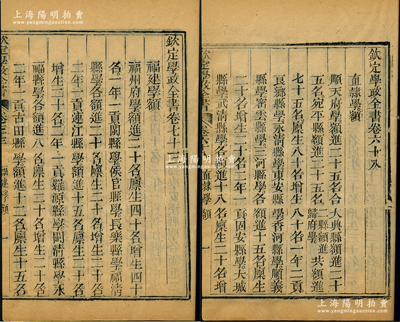 上海陽明拍賣
欽定學政全書卷六十八
直隸學額
順天府學額進二十五名大興縣額進二十
五名宛平縣額進二十五名二縣額進共額進歸府學
七十五名廩生八十名增生八十名一年二貢
良鄉縣學永清縣學東安縣學香河縣學順義
縣學密雲縣學三河縣學各額進十五名廩生
二十名增生二十名二年一貢固安縣學大城
縣學武清縣學各額進十八名廩生二十名增
欽定學政全書 卷六 直隸學額 一
欽定學政全書卷七十
福建學額
福州府學額進二十名廩生四十名增生四十
名一年一貢閩縣學侯官縣學長樂縣學福清
縣學各額進二十名廩生二十名增生二十名
二年一貢連江縣學額進十五名廩生二十名
增生二十名二年一貢羅源縣學閩清縣學永
福縣學各額進八名廩生二十名增生二十名
二年一貢古田縣學額進十二名廩生二十名
欽定學政全書 卷七 福建學額 一
上海陽明拍賣